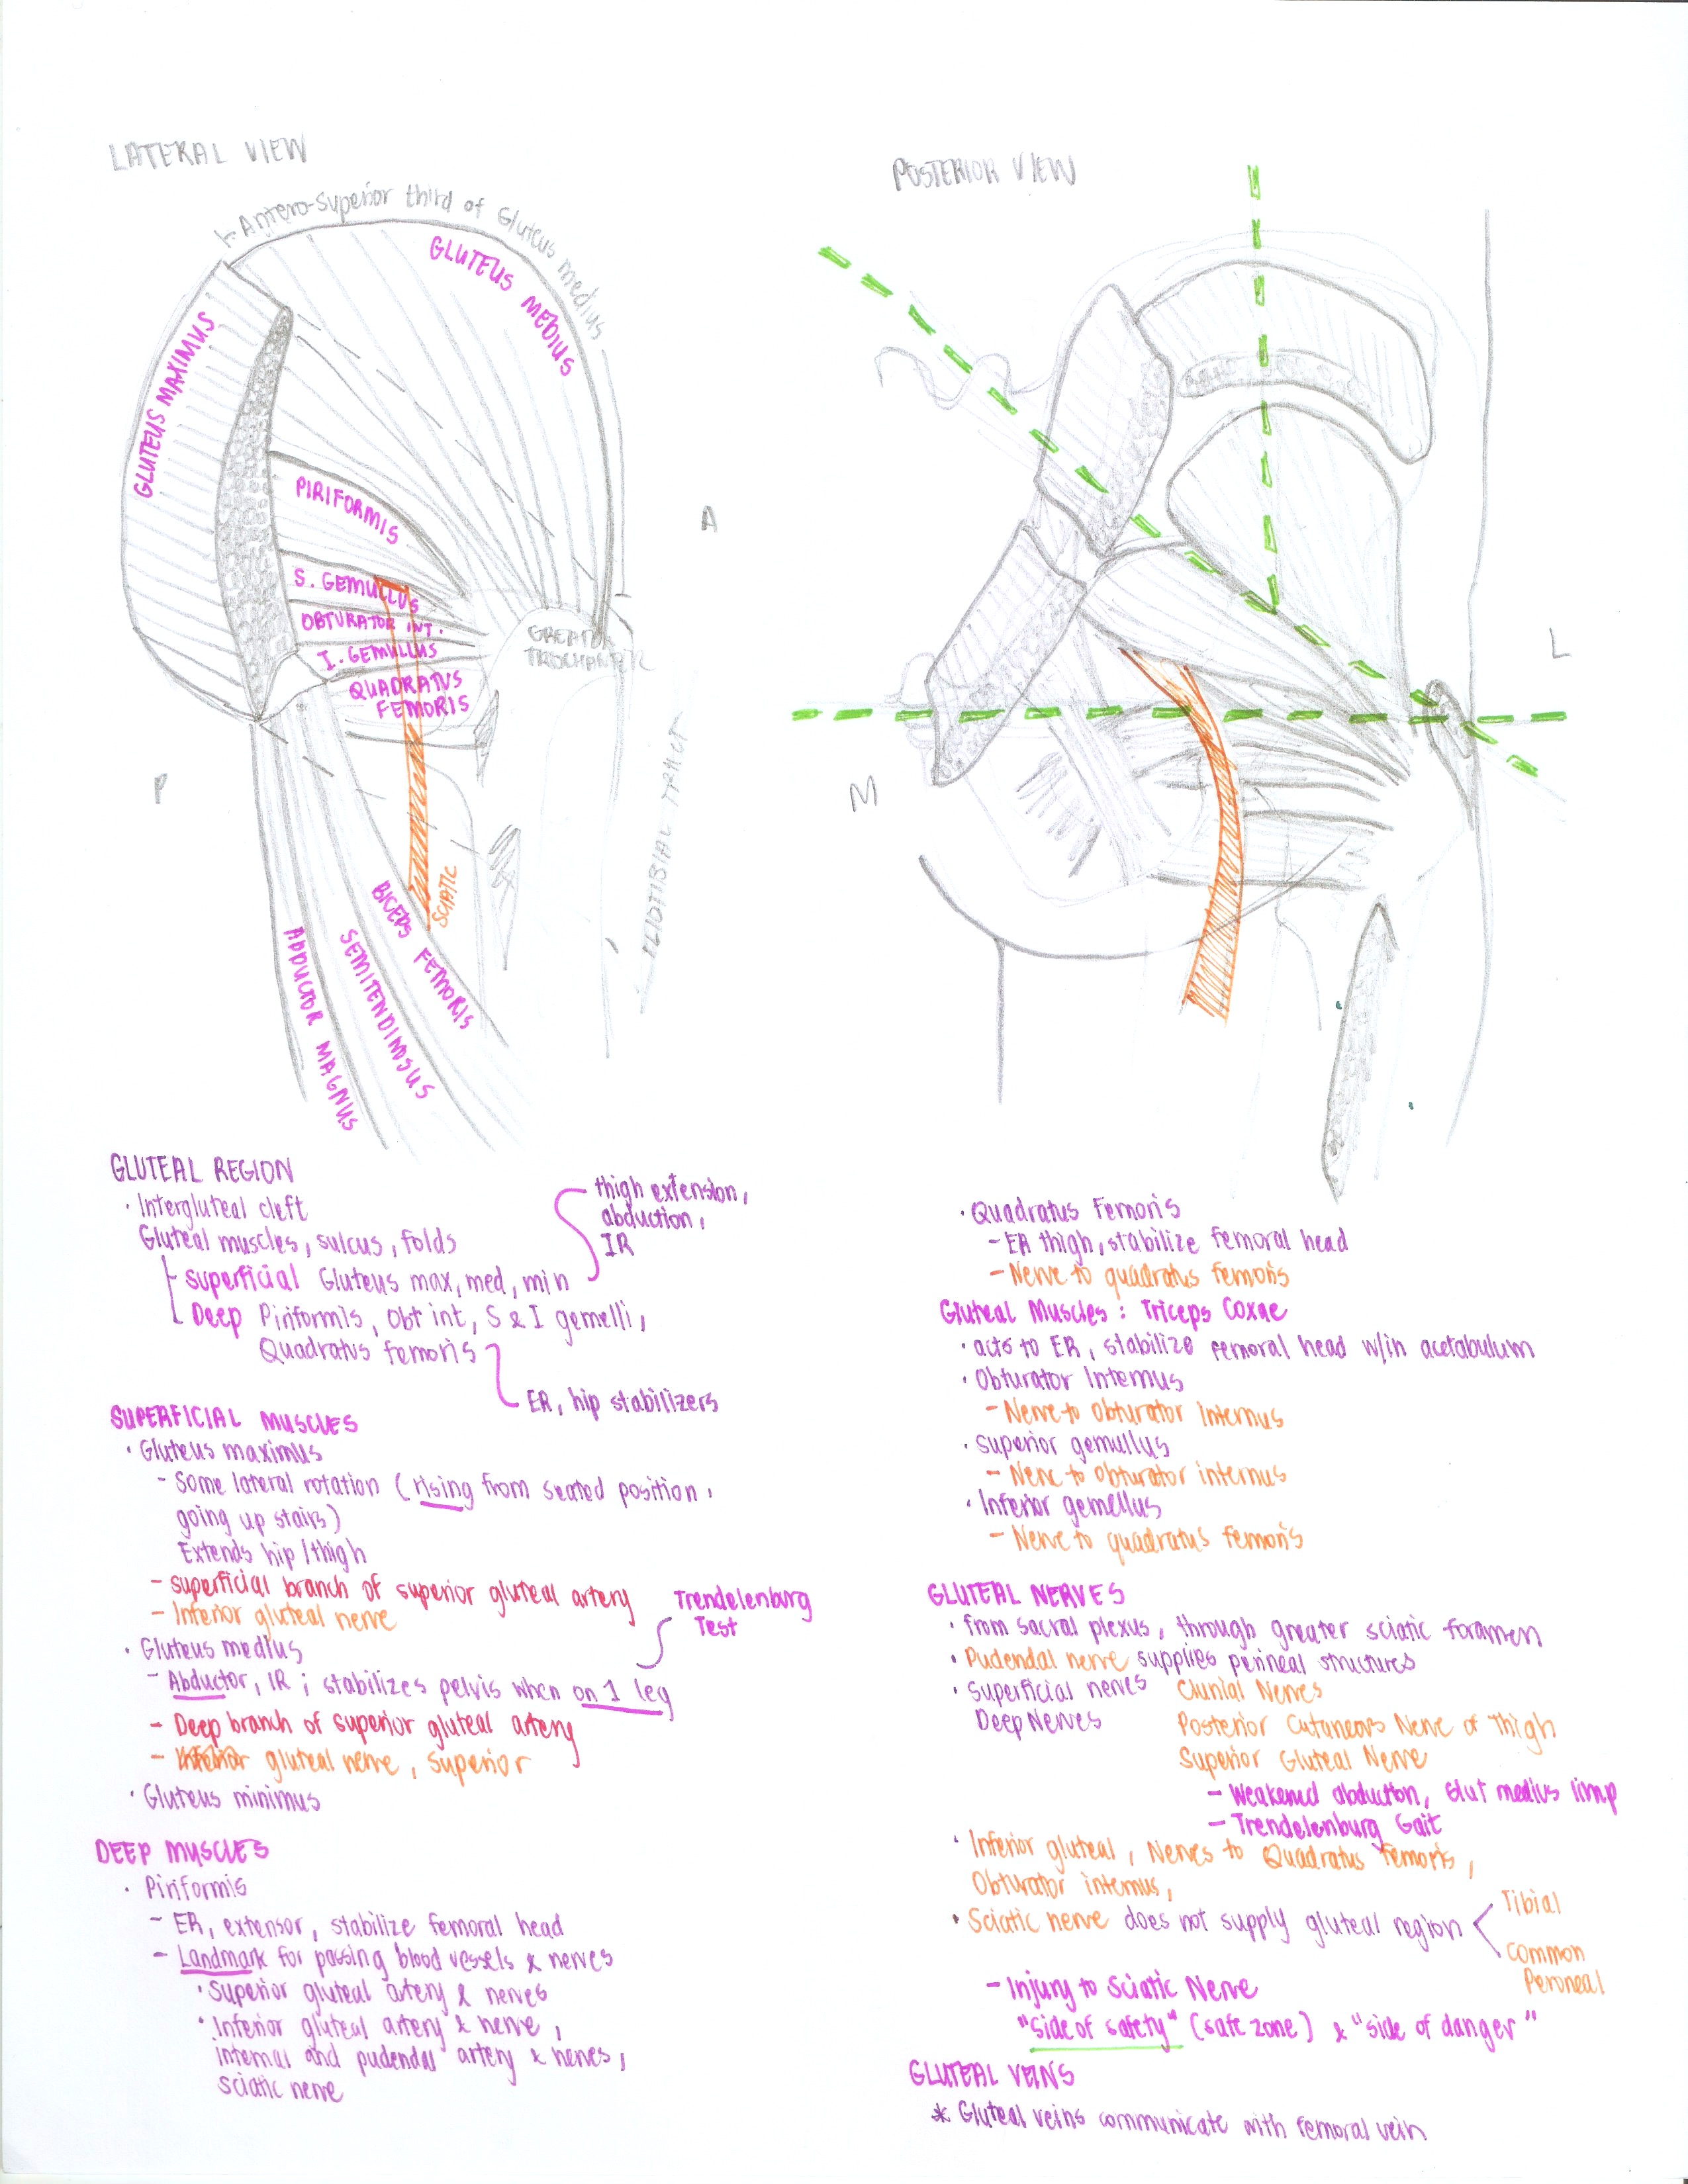 LATERAL VIEW
Antero-Superior third of Gluteus medius
GLUTEUS MEDIUS
GLUTEUS MAXIMUS
PIRIFORMIS
S. GEMULLUS
OBTURATOR INT.
I. GEMULLUS
QUADRATUS
FEMORIS
GREATER
TROCHANTER
A
P
ILIOTIBIAL TRACT
SCIATIC
BICEPS FEMORIS
SEMITENDINOSUS
ADDUCTOR MAGNUS
POSTERIOR VIEW
L
M
GLUTEAL REGION
· Intergluteal cleft
Gluteal muscles, sulcus, folds
superficial Gluteus max, med, min
thigh extension,
abduction,
IR
Deep Piriformis, Obt int, S & I gemelli,
Quadratus femoris
ER, hip stabilizers
SUPERFICIAL MUSCLES
· Gluteus maximus
- Some lateral rotation (rising from seated position,
going up stairs)
Extends hip/thigh
- superficial branch of superior gluteal artery
- Inferior gluteal nerve
· Gluteus medius
Trendelenburg
Test
- Abductor, IR ; stabilizes pelvis when on 1 leg
- Deep branch of superior gluteal artery
- Inferior gluteal nerve, superior
· Gluteus minimus
DEEP MUSCLES
· Piriformis
- ER, extensor, stabilize femoral head
- Landmark for passing blood vessels & nerves
· Superior gluteal artery & nerves
· Inferior gluteal artery & nerve,
internal and pudendal artery & nerves,
sciatic nerve
· Quadratus Femoris
- ER thigh, stabilize femoral head
- Nerve to quadratus femoris
Gluteal Muscles: Triceps Coxae
· acts to ER, stabilize femoral head w/in acetabulum
· Obturator Internus
- Nerve to obturator internus
· superior gemullus
- Nerve to obturator internus
· Inferior gemellus
- Nerve to quadratus femoris
GLUTEAL NERVES
· from sacral plexus, through greater sciatic foramen
· Pudendal nerve supplies perineal structures
· Superficial nerves Clunial Nerves
Deep Nerves Posterior Cutaneous Nerve of Thigh
Superior Gluteal Nerve
- Weakened abduction, Glut medius limp
- Trendelenburg Gait
· Inferior gluteal, Nerves to Quadratus femoris,
Obturator internus,
· Sciatic nerve does not supply gluteal region
Tibial
Common
Peroneal
- Injury to Sciatic Nerve
"Side of safety" (safe zone) & "side of danger"
GLUTEAL VEINS
* Gluteal veins communicate with femoral vein